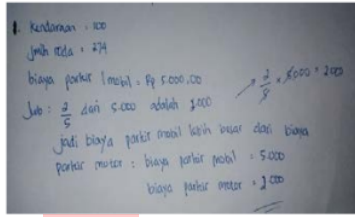 1. Kendaraan = 100
Jmlh roda = 274
biaya parkir 1 mobil = Rp 5.000,00
Jwb : 2/5 dari 5.000 adalah 2000 → 2/5 × 5000 = 2000
jadi biaya parkir mobil lebih besar dari biaya
parkir motor : biaya parkir mobil = 5.000
biaya parkir motor = 2.000